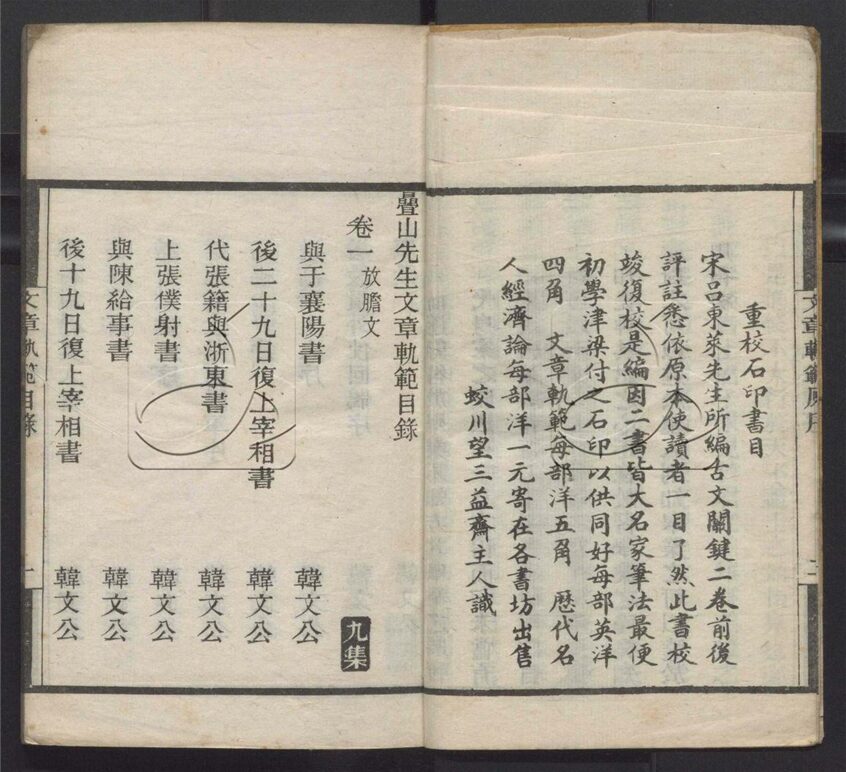 重校石印書目
宋呂東萊先生所編古文關鍵二卷前後
評註悉依原本使讀者一目了然此書校
竣復校是編因二書皆大名家筆法最便
初學津梁付之石印以供同好每部英洋
四角　文章軌範每部洋五角　歷代名
人經濟論每部洋一元寄在各書坊出售
蛟川望三益齋主人識
疊山先生文章軌範目錄
卷一　放膽文
九集
與于襄陽書　韓文公
後二十九日復上宰相書　韓文公
代張籍與浙東書　韓文公
上張僕射書　韓文公
與陳給事書　韓文公
後十九日復上宰相書　韓文公
文章軌範目錄
一